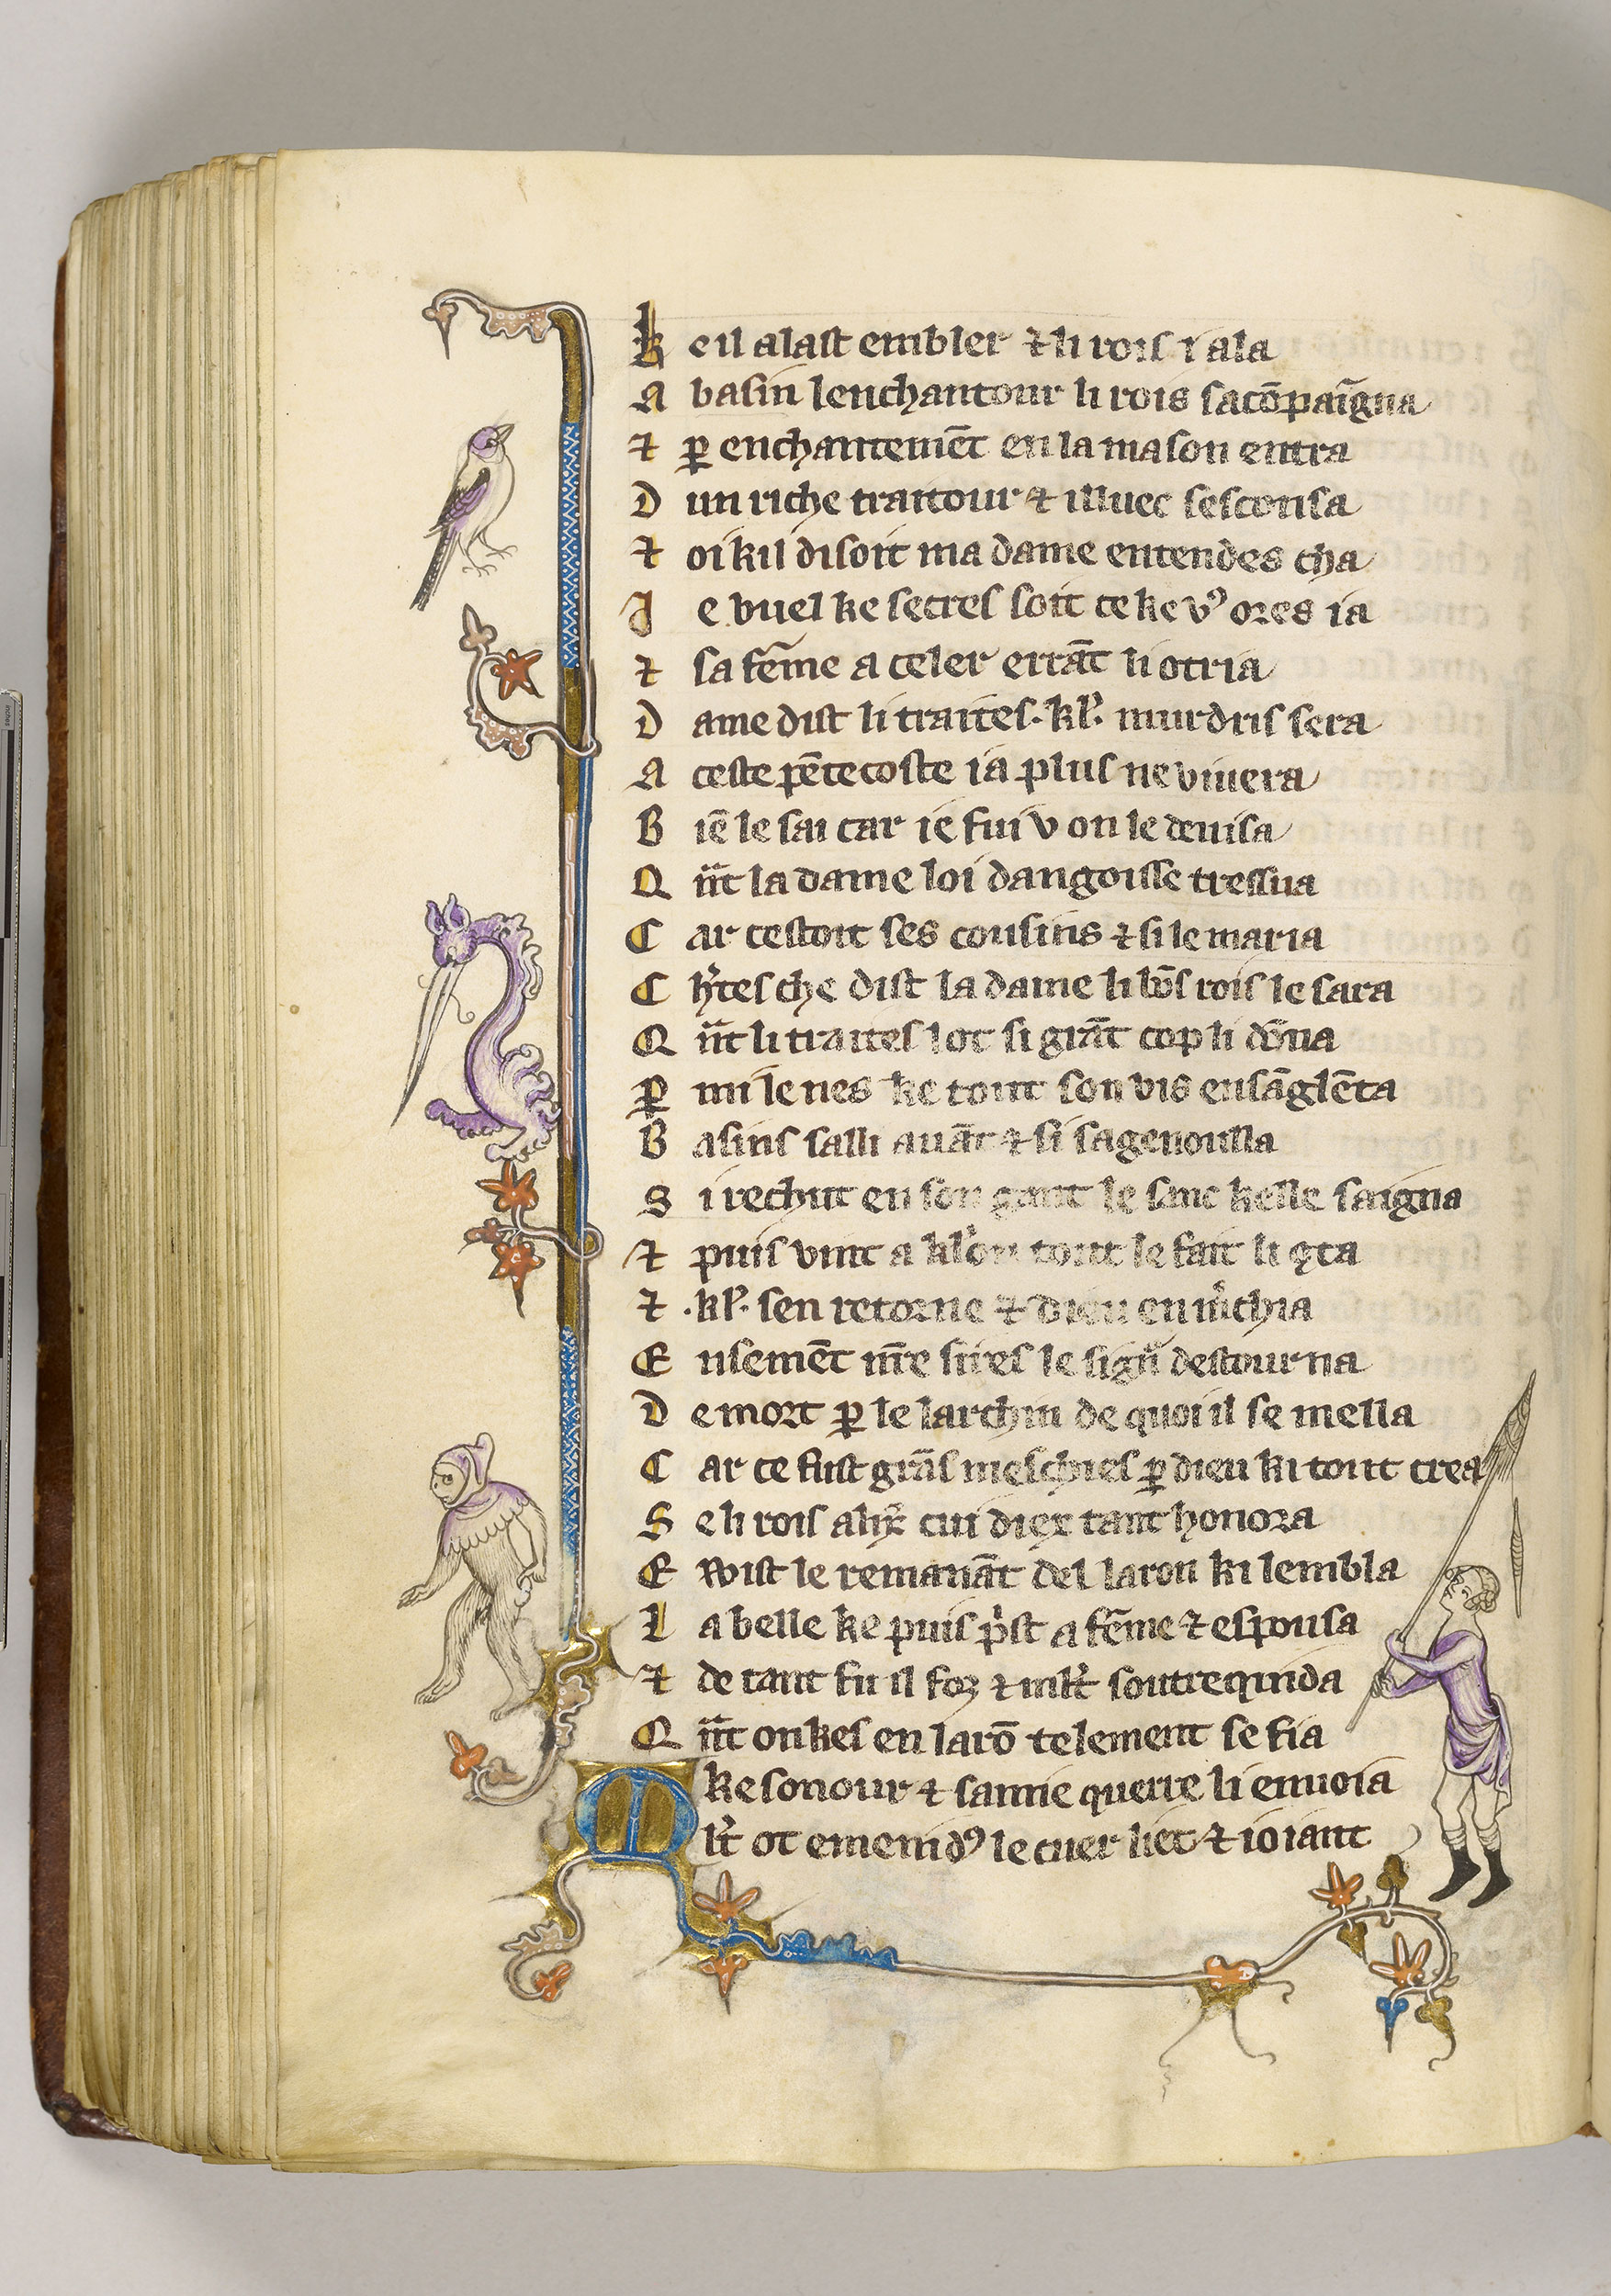 K e il alast embler ⁊ li rois i ala
A basin lenchantour li rois sacōpaīgna
⁊ ꝑ enchantemēt en la maison entra
D un riche traitour ⁊ illuec sesconsa
⁊ oi kil disoit ma dame entendes cha
J e vuel ke secres soit ce ke vꝰ ores ia
⁊ sa fēme a celer errāt li otria
D ame dist li traites · kl̓ · murdris sera
A ceste pētecoste ia plus ne vivera
B iē le sai car ie fui v on le devisa
Q n̄t la dame loi dangoisse tressua
C ar cestoit ses cousins ⁊ si le maria
C h̓tes che dist la dame li bōs rois le sara
Q n̄t li traites lot si grāt cop li dōna
ꝑ mi le nes ke tout son vis ensāglēta
B asins salli avāt ⁊ si sagenoulla
S i rechut en son gant le sanc kelle saigna
⁊ puis vint a kl̓on tout le fait li ꝯta
⁊ · kl̓ · sen retorne ⁊ dieu en m̓chia
E nsemēt nr̄e sires le sign̓ destourna
D e mort ꝑ le larchin de quoi il se mella
C ar ce fust grās meschies ꝑ dieu ki tout crea
S e li rois alix̓ cui diex tant honora
E wist le remanāt del laron ki lembla
L a belle ke puis p̓st a fēme ⁊ espousa
⁊ de tant fu il fox ⁊ ml̓t soutrequida
Q n̄t onkes en larō telement se fia
ke sonour ⁊ samie querre li envoia
M l̓t ot emenidꝰ le cuer liet ⁊ ioiant